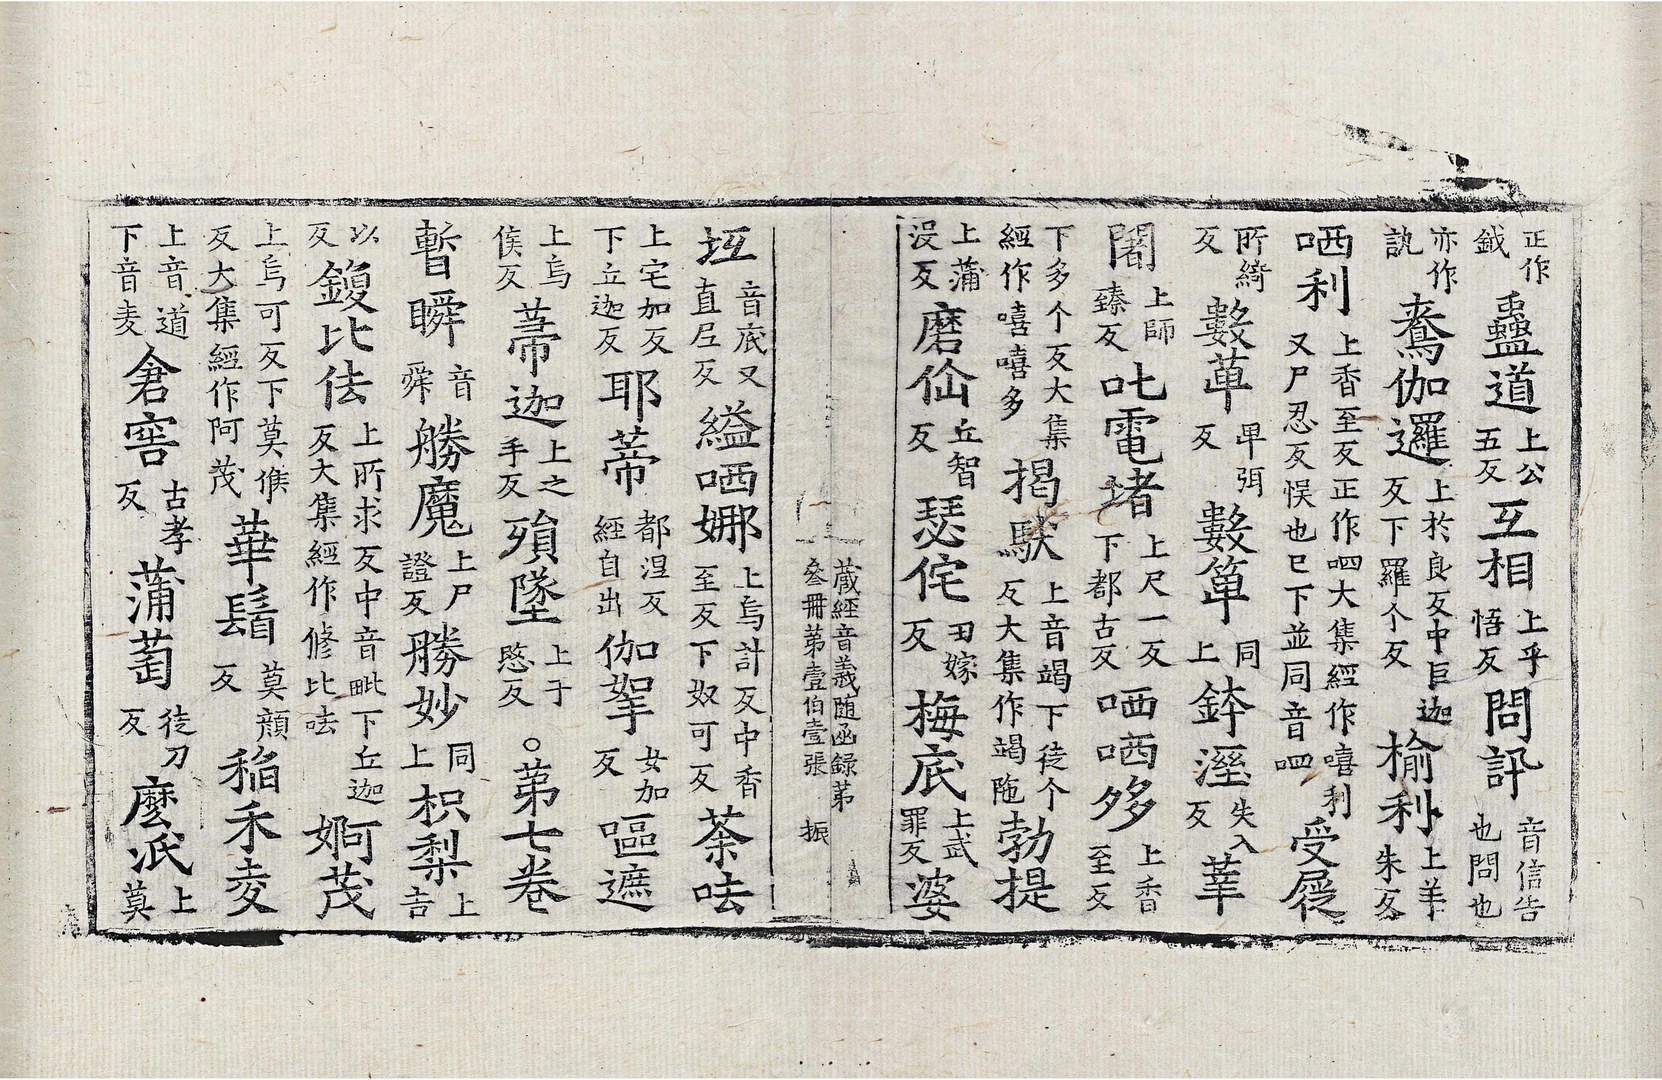 正作鉞蠱道上公五反互相上乎悟反問訊音信告也問也
亦作訙鴦伽邏上於良反中巨迦反下羅个反榆利上羊朱反
哂利上香至反正作呬大集經作嘻利又尸忍反悮也巳下並同音呬受屣
所綺反數萆卑弭反數箄同上鉢溼失入反莘
闍上師臻反叱電堵上尺一反下都古反哂哂多上香至反
下多个反大集經作嘻嘻多揭馱上音竭下徒个反大集作竭陁勃提
上蒲沒反磨仚丘智反瑟侘田嫁反梅底上武罪反婆
藏經音義随函録苐叄冊苐壹伯壹張 振
坘音底又直尼反縊哂娜上烏計反中香至反下奴可反荼呿
上宅加反下丘迦反耶蒂都涅反經自出伽拏女加反嘔遮
上烏侯反菷迦上之手反殞墜上于愍反。苐七卷
暫瞬音舜勝魔上尸證反勝妙同上枳梨上吉
以反鍑比佉上所求反中音毗下丘迦反大集經作修比呿婀茂
上烏可反下莫侯反大集經作阿茂華鬘莫顏反稻禾麦
上音道下音麦倉窖古孝反蒲萄徒刀反麼泜上莫